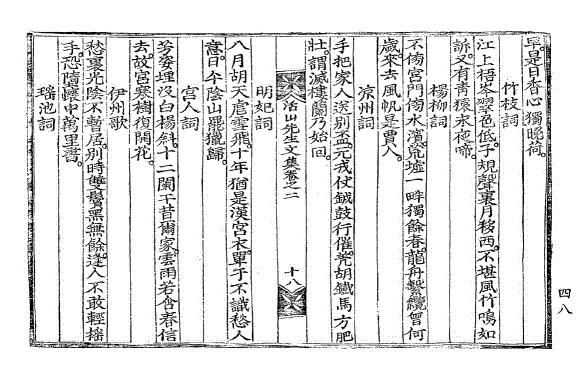 早是日香心獨晚荷
竹枝詞
江上梧岑翠色低子規聲裏月移西不堪風竹鳴如
訴又有靑猿末夜啼
楊柳詞
不傍宮門傍水濱荒墟一畔獨餘春龍舟繫纜曾何
歲來去風帆是賈人
凉州詞
手把家人送別盃元戎仗鉞鼓行催羌胡鐵馬方肥
壯謂滅樓蘭乃始回
活山先生文集卷之二
十八
明妃詞
八月胡天虐雪飛十年猶是漢宮衣單于不識愁人
意日午陰山罷獵歸
宮人詞
芳殘埋沒白楊斜十二闌干昔爾家雲雨若含春信
去故宮寒樹復開花
伊州歌
愁裏光陰不暫居別時雙鬢黑無餘逢人不敢輕搖
手恐墮懷中萬里書
瑤池詞
四八